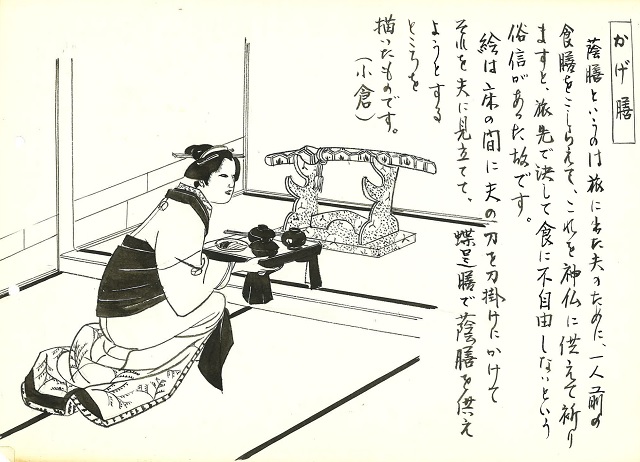 かげ膳
蔭膳というのは旅に出た夫のために、一人前の
食膳をこしらえて、これを神仏に供えて祈り
ますと、旅先で決して食に不自由しないという
俗信があった故です。
絵は床の間に夫の刀を刀掛けにかけて
それを夫に見立てて、蝶足膳で蔭膳を供え
ようとする
ところを
描いたものです。
(小倉)